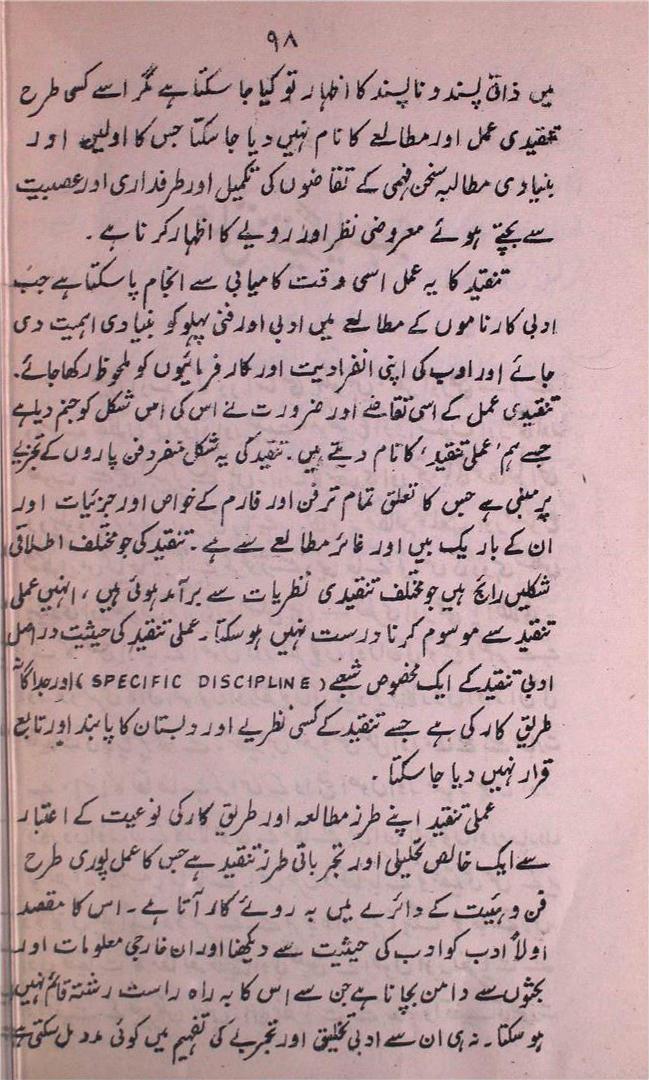 ۹۸
میں ذاتی پسند و ناپسند کا اظہار تو کیا جا سکتا ہے مگر اسے کسی طرح
تنقیدی عمل اور مطالعے کا نام نہیں دیا جا سکتا جس کا اولین اور
بنیادی مطالبہ سخن فہمی کے تقاضوں کی تکمیل اور طرفداری اور عصبیت
سے بچتے ہوئے معروضی نظر اور رویے کا اظہار کرنا ہے ۔
تنقید کا یہ عمل اسی وقت کامیابی سے انجام پا سکتا ہے جب
ادبی کارناموں کے مطالعے میں ادبی اور فنی پہلو کو بنیادی اہمیت دی
جائے اور ادب کی اپنی انفرادیت اور کارفرمائیوں کو ملحوظ رکھا جائے.
تنقیدی عمل کے اسی تقاضے اور ضرورت نے اس کی اس شکل کو جنم دیا ہے
جسے ہم ’عملی تنقید‘ کا نام دیتے ہیں ۔ تنقید کی یہ شکل منفرد فن پاروں کے تجزیے
پر مبنی ہے جس کا تعلق تمام تر فن اور فارم کے خواص اور جزئیات اور
ان کے باریک بیں اور غائر مطالعے سے ہے ۔ تنقید کی جو مختلف اطلاقی
شکلیں رائج ہیں جو مختلف تنقیدی نظریات سے برآمد ہوئی ہیں ، انہیں عملی
تنقید سے موسوم کرنا درست نہیں ہو سکتا ۔ عملی تنقید کی حیثیت دراصل
ادبی تنقید کے ایک مخصوص شعبے (SPECIFIC DISCIPLINE) اور جداگانہ
طریق کار کی ہے جسے تنقید کے کسی نظریے اور دبستان کا پابند اور تابع
قرار نہیں دیا جا سکتا ۔
عملی تنقید اپنے طرز مطالعہ اور طریق کار کی نوعیت کے اعتبار
سے ایک خالص تحلیلی اور تجرباتی طرز تنقید ہے جس کا عمل پوری طرح
فن و ہیئت کے دائرے میں بہ روئے کار آتا ہے ۔ اس کا مقصد
اولاً ادب کو ادب کی حیثیت سے دیکھنا اور ان خارجی معلومات اور
بحثوں سے دامن بچانا ہے جن سے اس کا بہ راہ راست رشتہ قائم نہیں
ہو سکتا ۔ نہ ہی ان سے ادبی تخلیق اور تجربے کی تفہیم میں کوئی مدد مل سکتی ہے